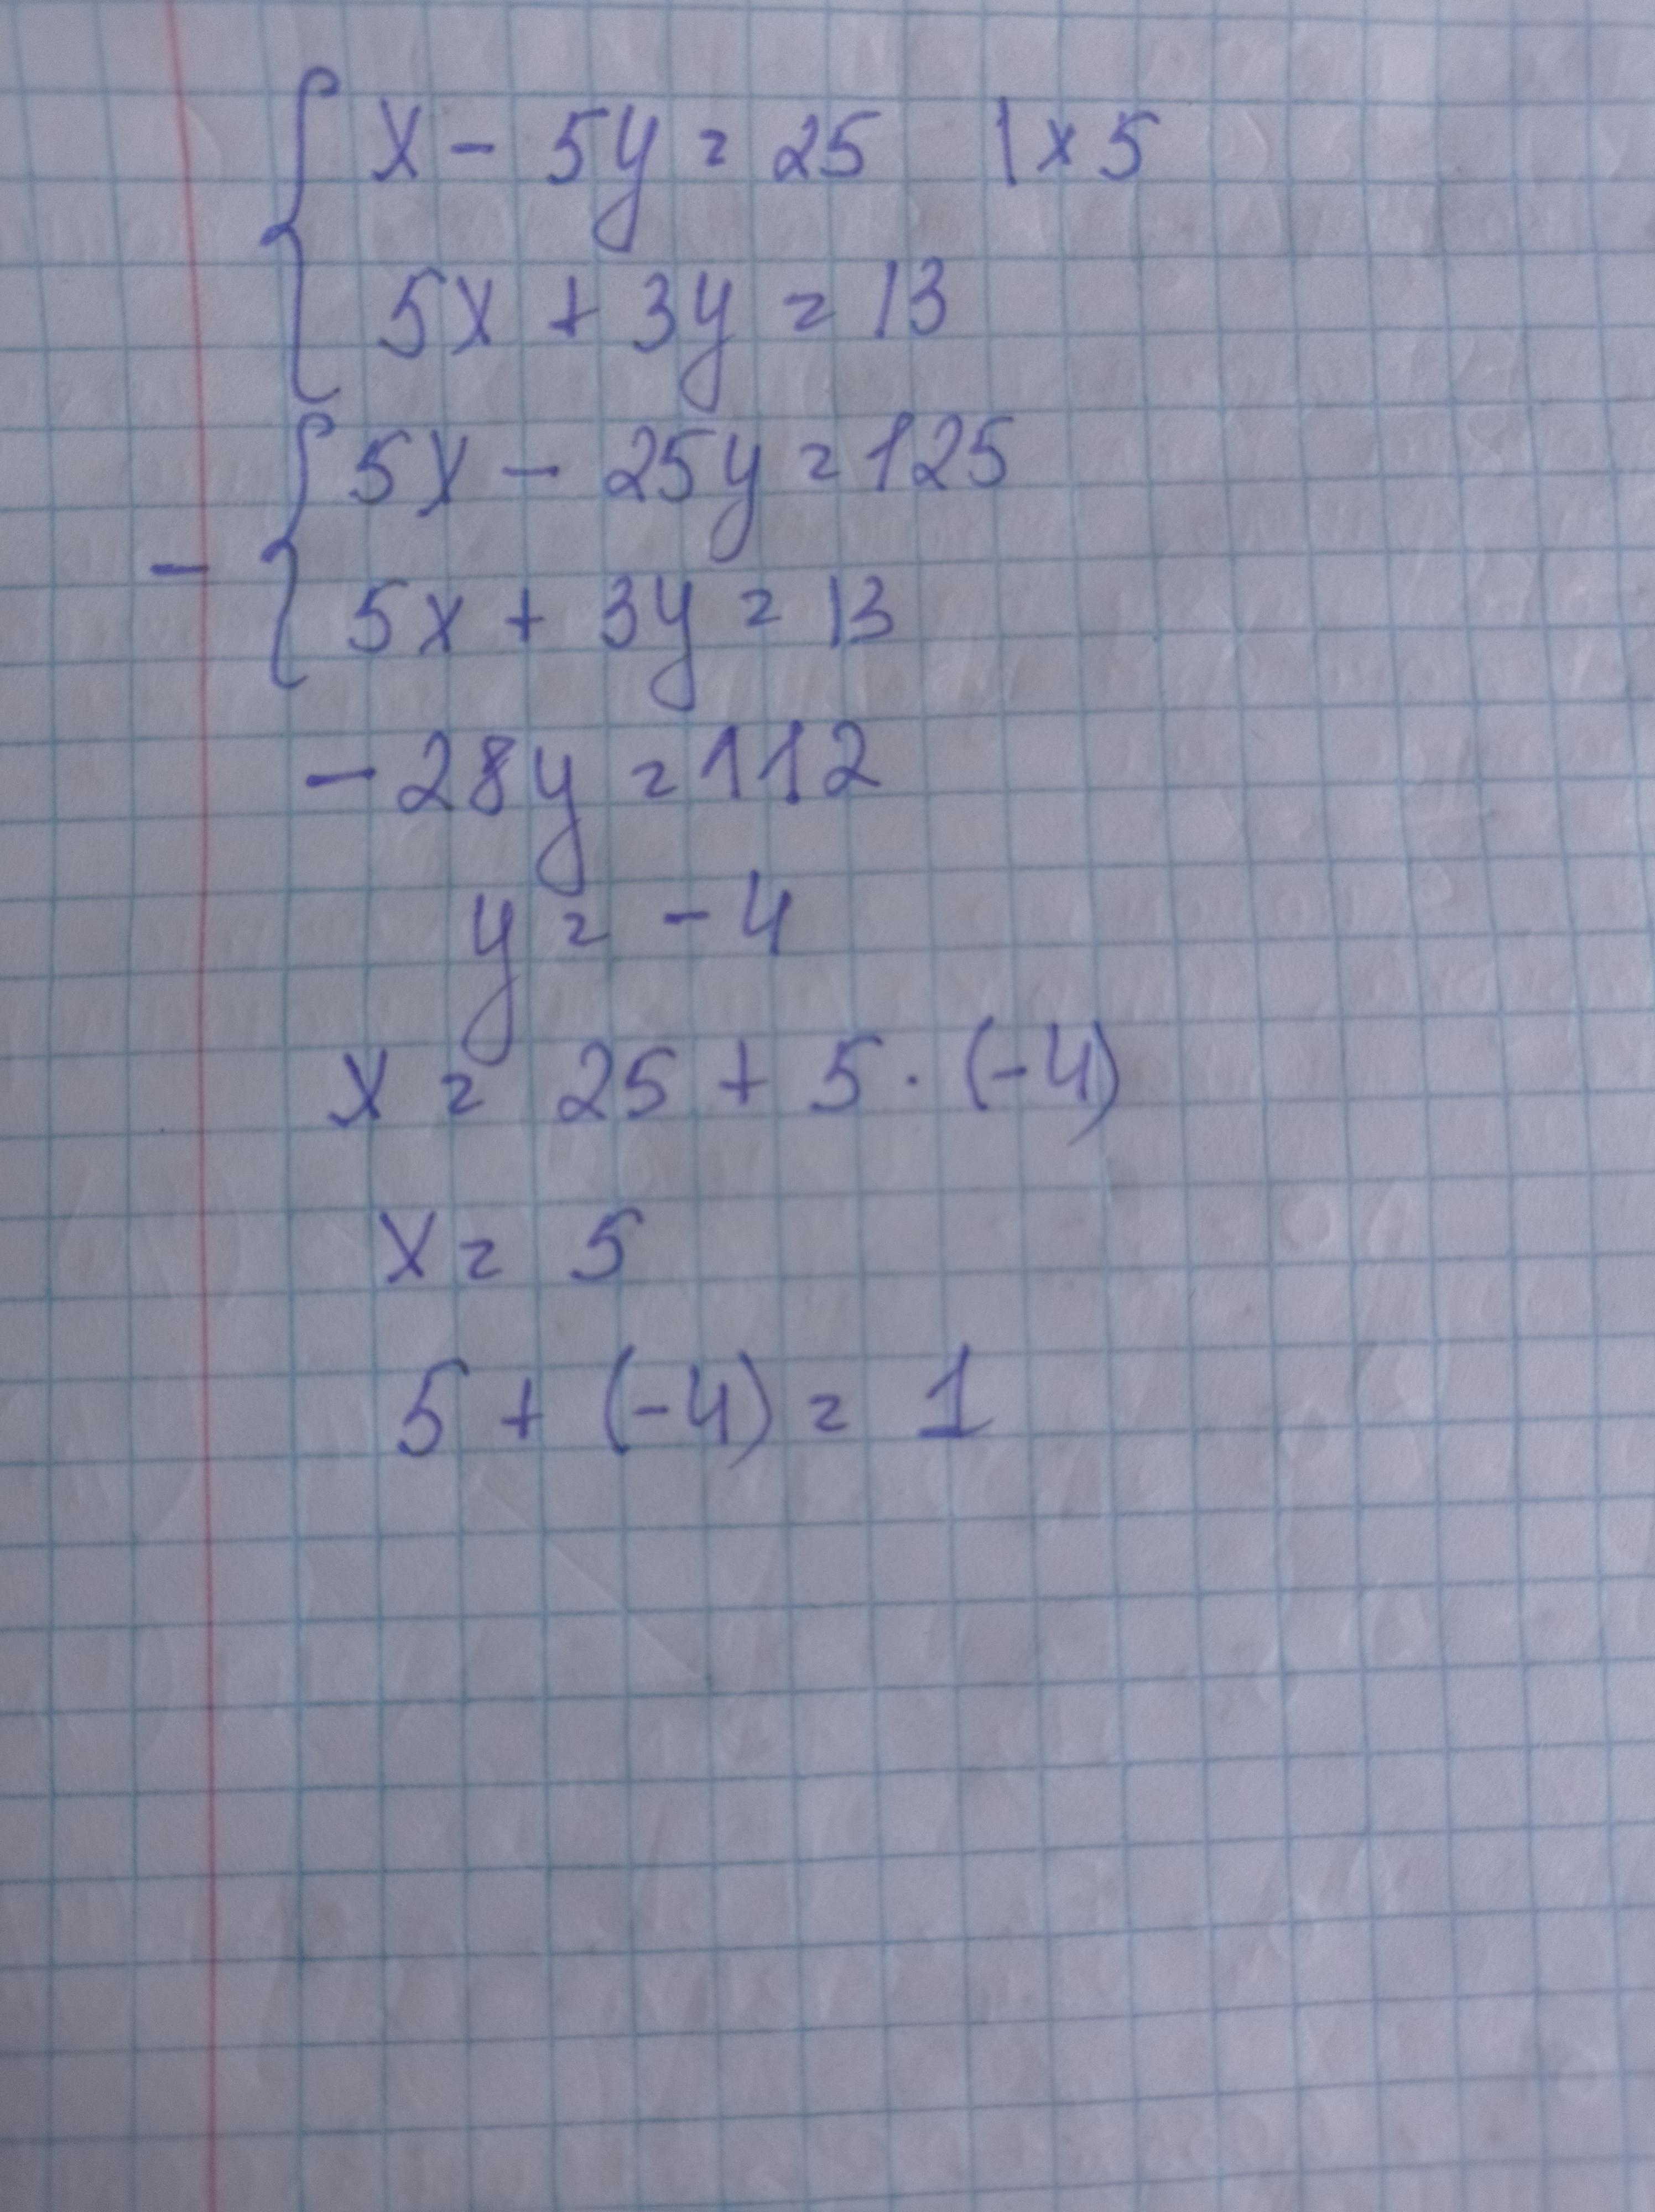 x - 5y = 25 | x 5
5x + 3y = 13
5x - 25y = 125
-
5x + 3y = 13
- 28y = 112
y = - 4
x = 25 + 5 · (-4)
x = 5
5 + (-4) = 1